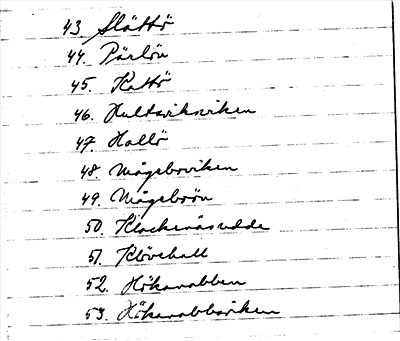 43 Slättö
44. Pärlön
45. Kattö
46. Hultsviksviken
47 Hallö
48. Mågeboviken
49. Mågeboön
50. Klockenäsudde
51. Klövehall
52. Hökanabben
53. Hökanabbaviken